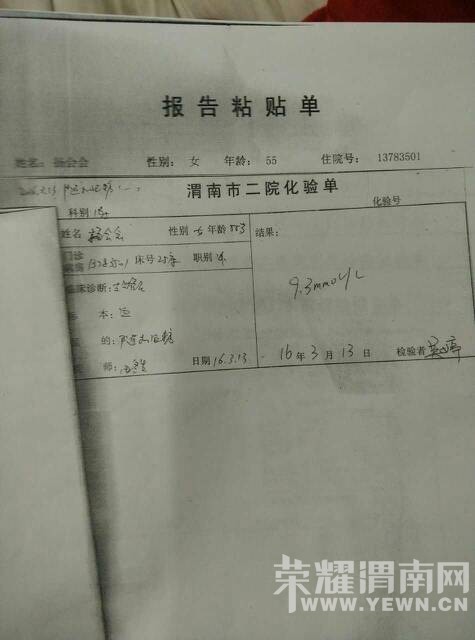 报告粘贴单
姓名: 杨会会 性别: 女 年龄: 55 住院号: 13783501
渭南市二院化验单
化验号
科别
姓名 杨会会 性别 女 年龄 55岁 结果:
门诊 床号 25床 职别
9.3mmol/L
临床诊断:
本: 血
的:
师: 日期 16.3.13 16年3月13日 检验者
荣耀渭南网
WWW.YEWN.CN